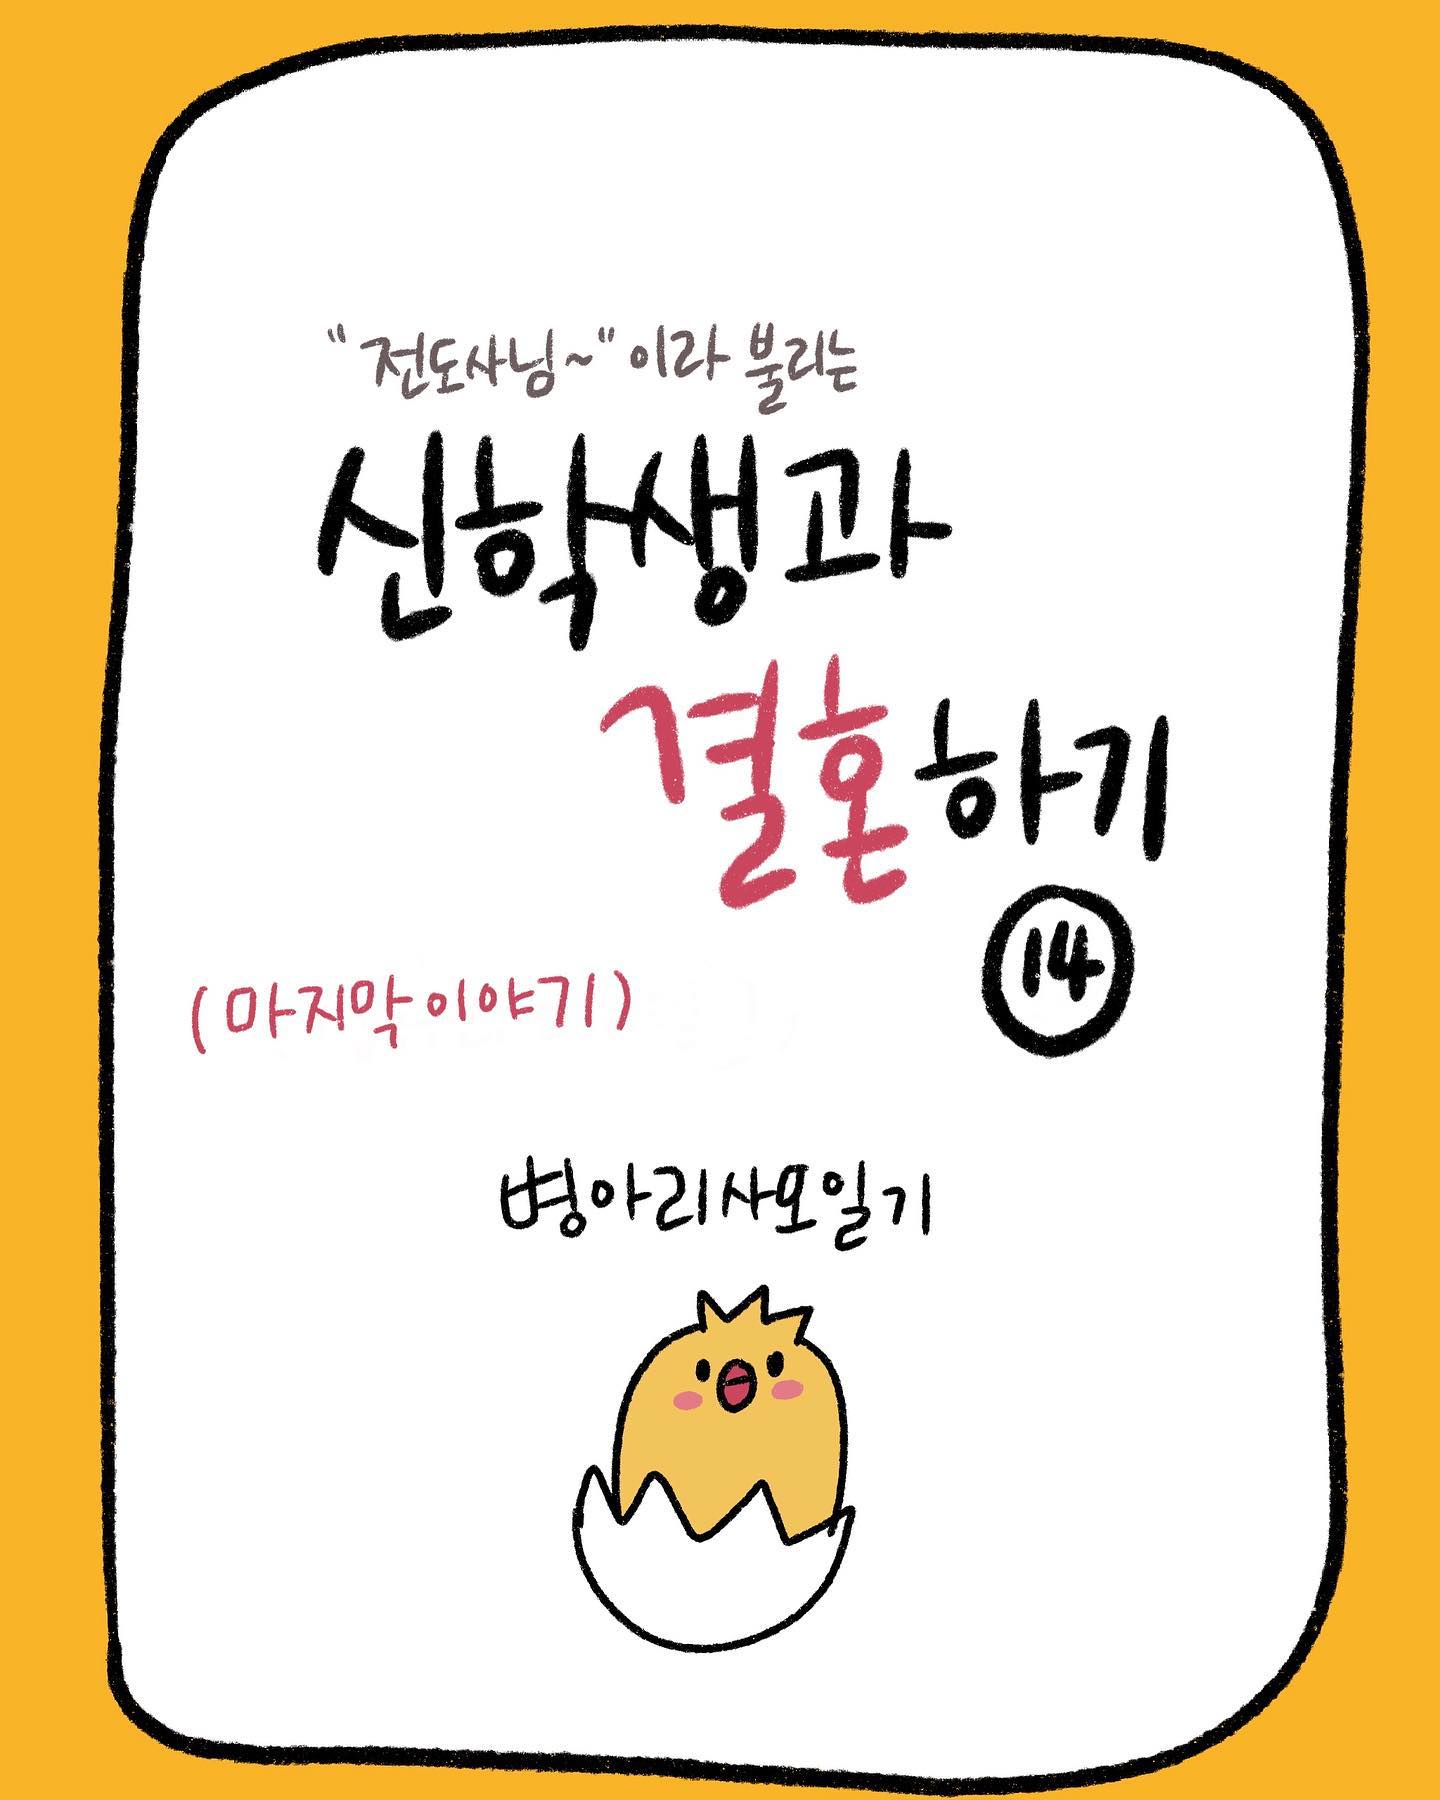 "전도사님~" 이라 불리는
신학생과
결혼하기
14
(마지막 이야기)
병아리사모일기